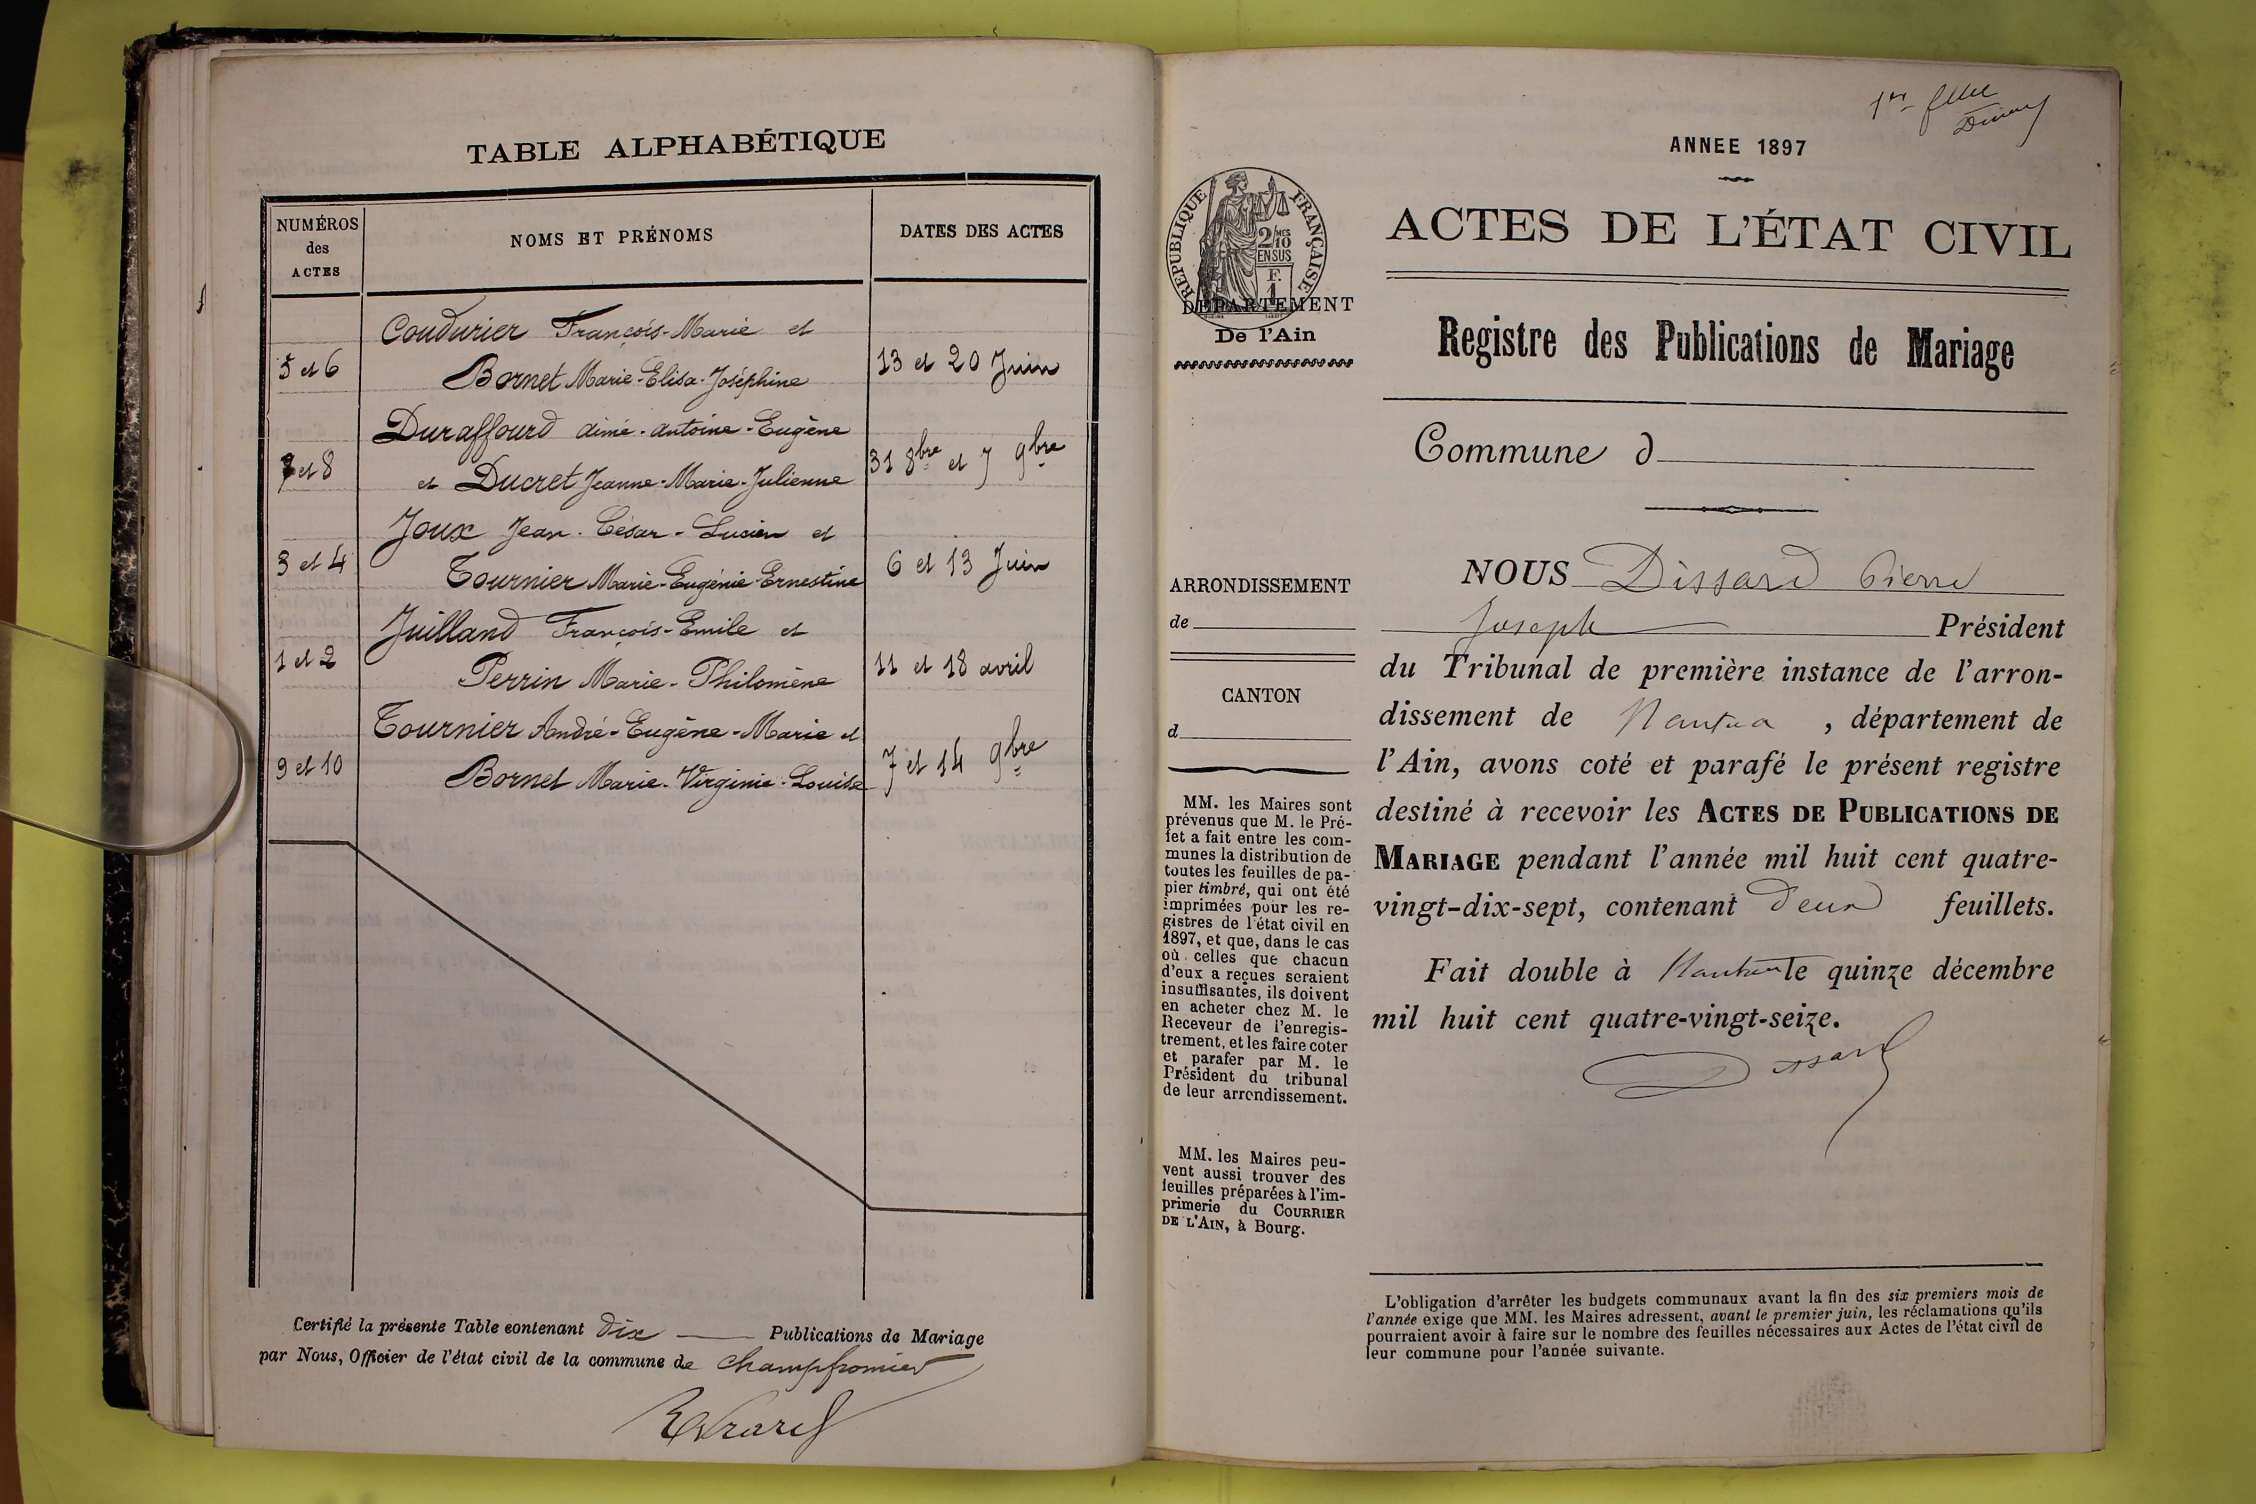 TABLE ALPHABÉTIQUE
NUMÉROS
des
ACTES
NOMS ET PRÉNOMS
DATES DES ACTES
Coudurier François-Marie et
5 et 6
Bornet Marie-Elisa-Joséphine
13 et 20 Juin
Duraffourd aimé-antoine-Eugène
7 et 8
et Ducret Jeanne-Marie-Julienne
31 8bre et 7 9bre
Joux Jean-César-Lucien et
3 et 4
Tournier Marie-Eugénie-Ernestine
6 et 13 Juin
Juilland François-Emile et
1 et 2
Perrin Marie-Philomène
11 et 18 avril
Tournier André-Eugène-Marie et
9 et 10
Bornet Marie-Virginie-Louise
7 et 14 9bre
Certifié la présente Table contenant dix Publications de Mariage
par Nous, Officier de l'état civil de la commune de Champfromier
1er
ANNEE 1897
RÉPUBLIQUE FRANÇAISE
2/10 MES
EN SUS
F.
1
DÉPARTEMENT
De l'Ain
ARRONDISSEMENT
de
CANTON
d
MM. les Maires sont
prévenus que M. le Pré-
fet a fait entre les com-
munes la distribution de
toutes les feuilles de pa-
pier timbré, qui ont été
imprimées pour les re-
gistres de l'état civil en
1897, et que, dans le cas
où celles que chacun
d'eux a reçues seraient
insuffisantes, ils doivent
en acheter chez M. le
Receveur de l'enregis-
trement, et les faire coter
et parafer par M. le
Président du tribunal
de leur arrondissement.
MM. les Maires peu-
vent aussi trouver des
feuilles préparées à l'im-
primerie du COURRIER
DE L'AIN, à Bourg.
ACTES DE L'ÉTAT CIVIL
Registre des Publications de Mariage
Commune d
NOUS Dissard Pierre
Joseph Président
du Tribunal de première instance de l'arron-
dissement de Nantua , département de
l'Ain, avons coté et parafé le présent registre
destiné à recevoir les ACTES DE PUBLICATIONS DE
MARIAGE pendant l'année mil huit cent quatre-
vingt-dix-sept, contenant deux feuillets.
Fait double à Nantua le quinze décembre
mil huit cent quatre-vingt-seize.
Dissard
L'obligation d'arrêter les budgets communaux avant la fin des six premiers mois de
l'année exige que MM. les Maires adressent, avant le premier juin, les réclamations qu'ils
pourraient avoir à faire sur le nombre des feuilles nécessaires aux Actes de l'état civil de
leur commune pour l'année suivante.